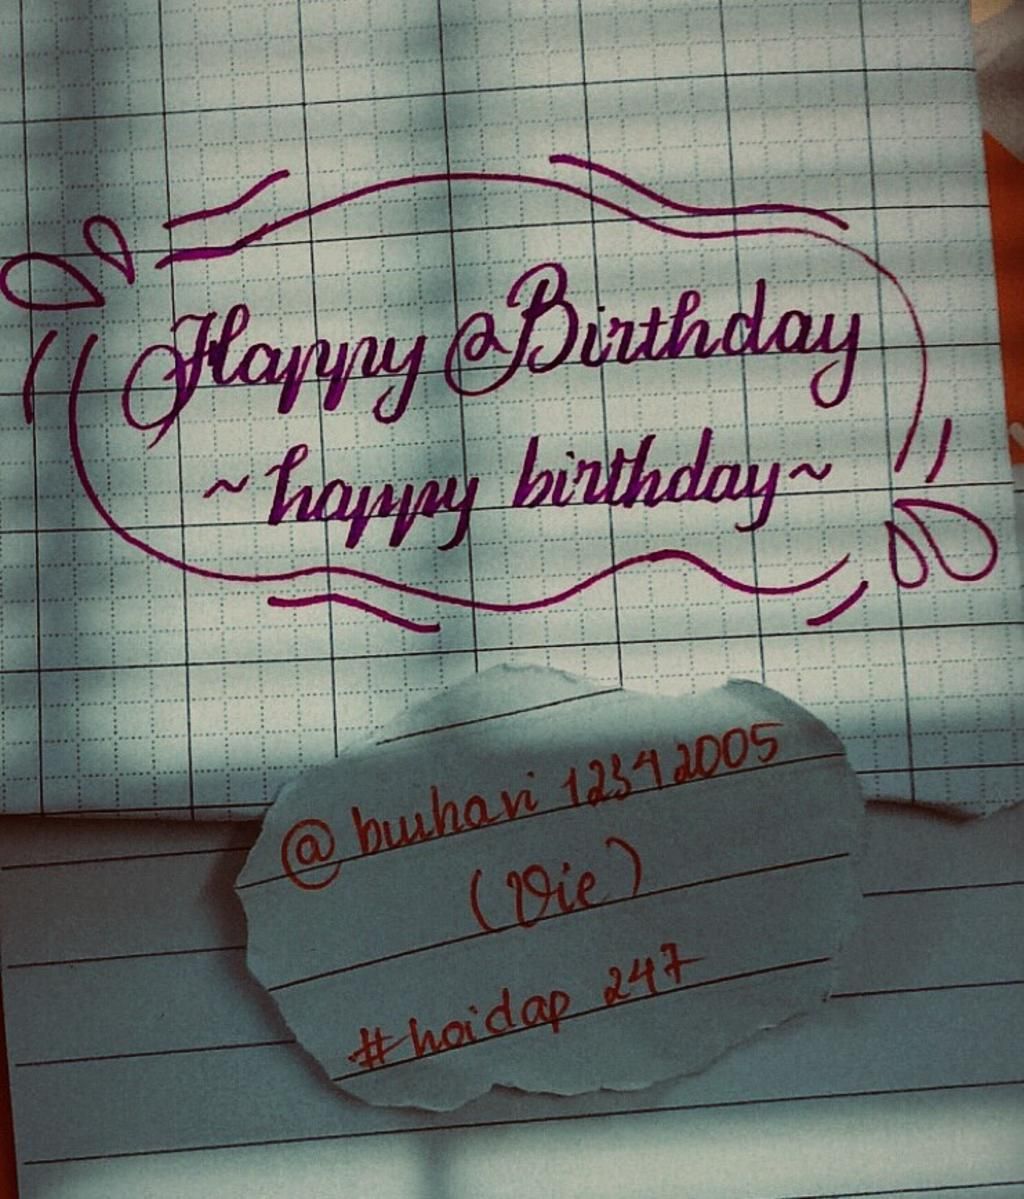 Happy Birthday
~ happy birthday ~
@ buihavi 12342005
(Vie)
#hoidap 247